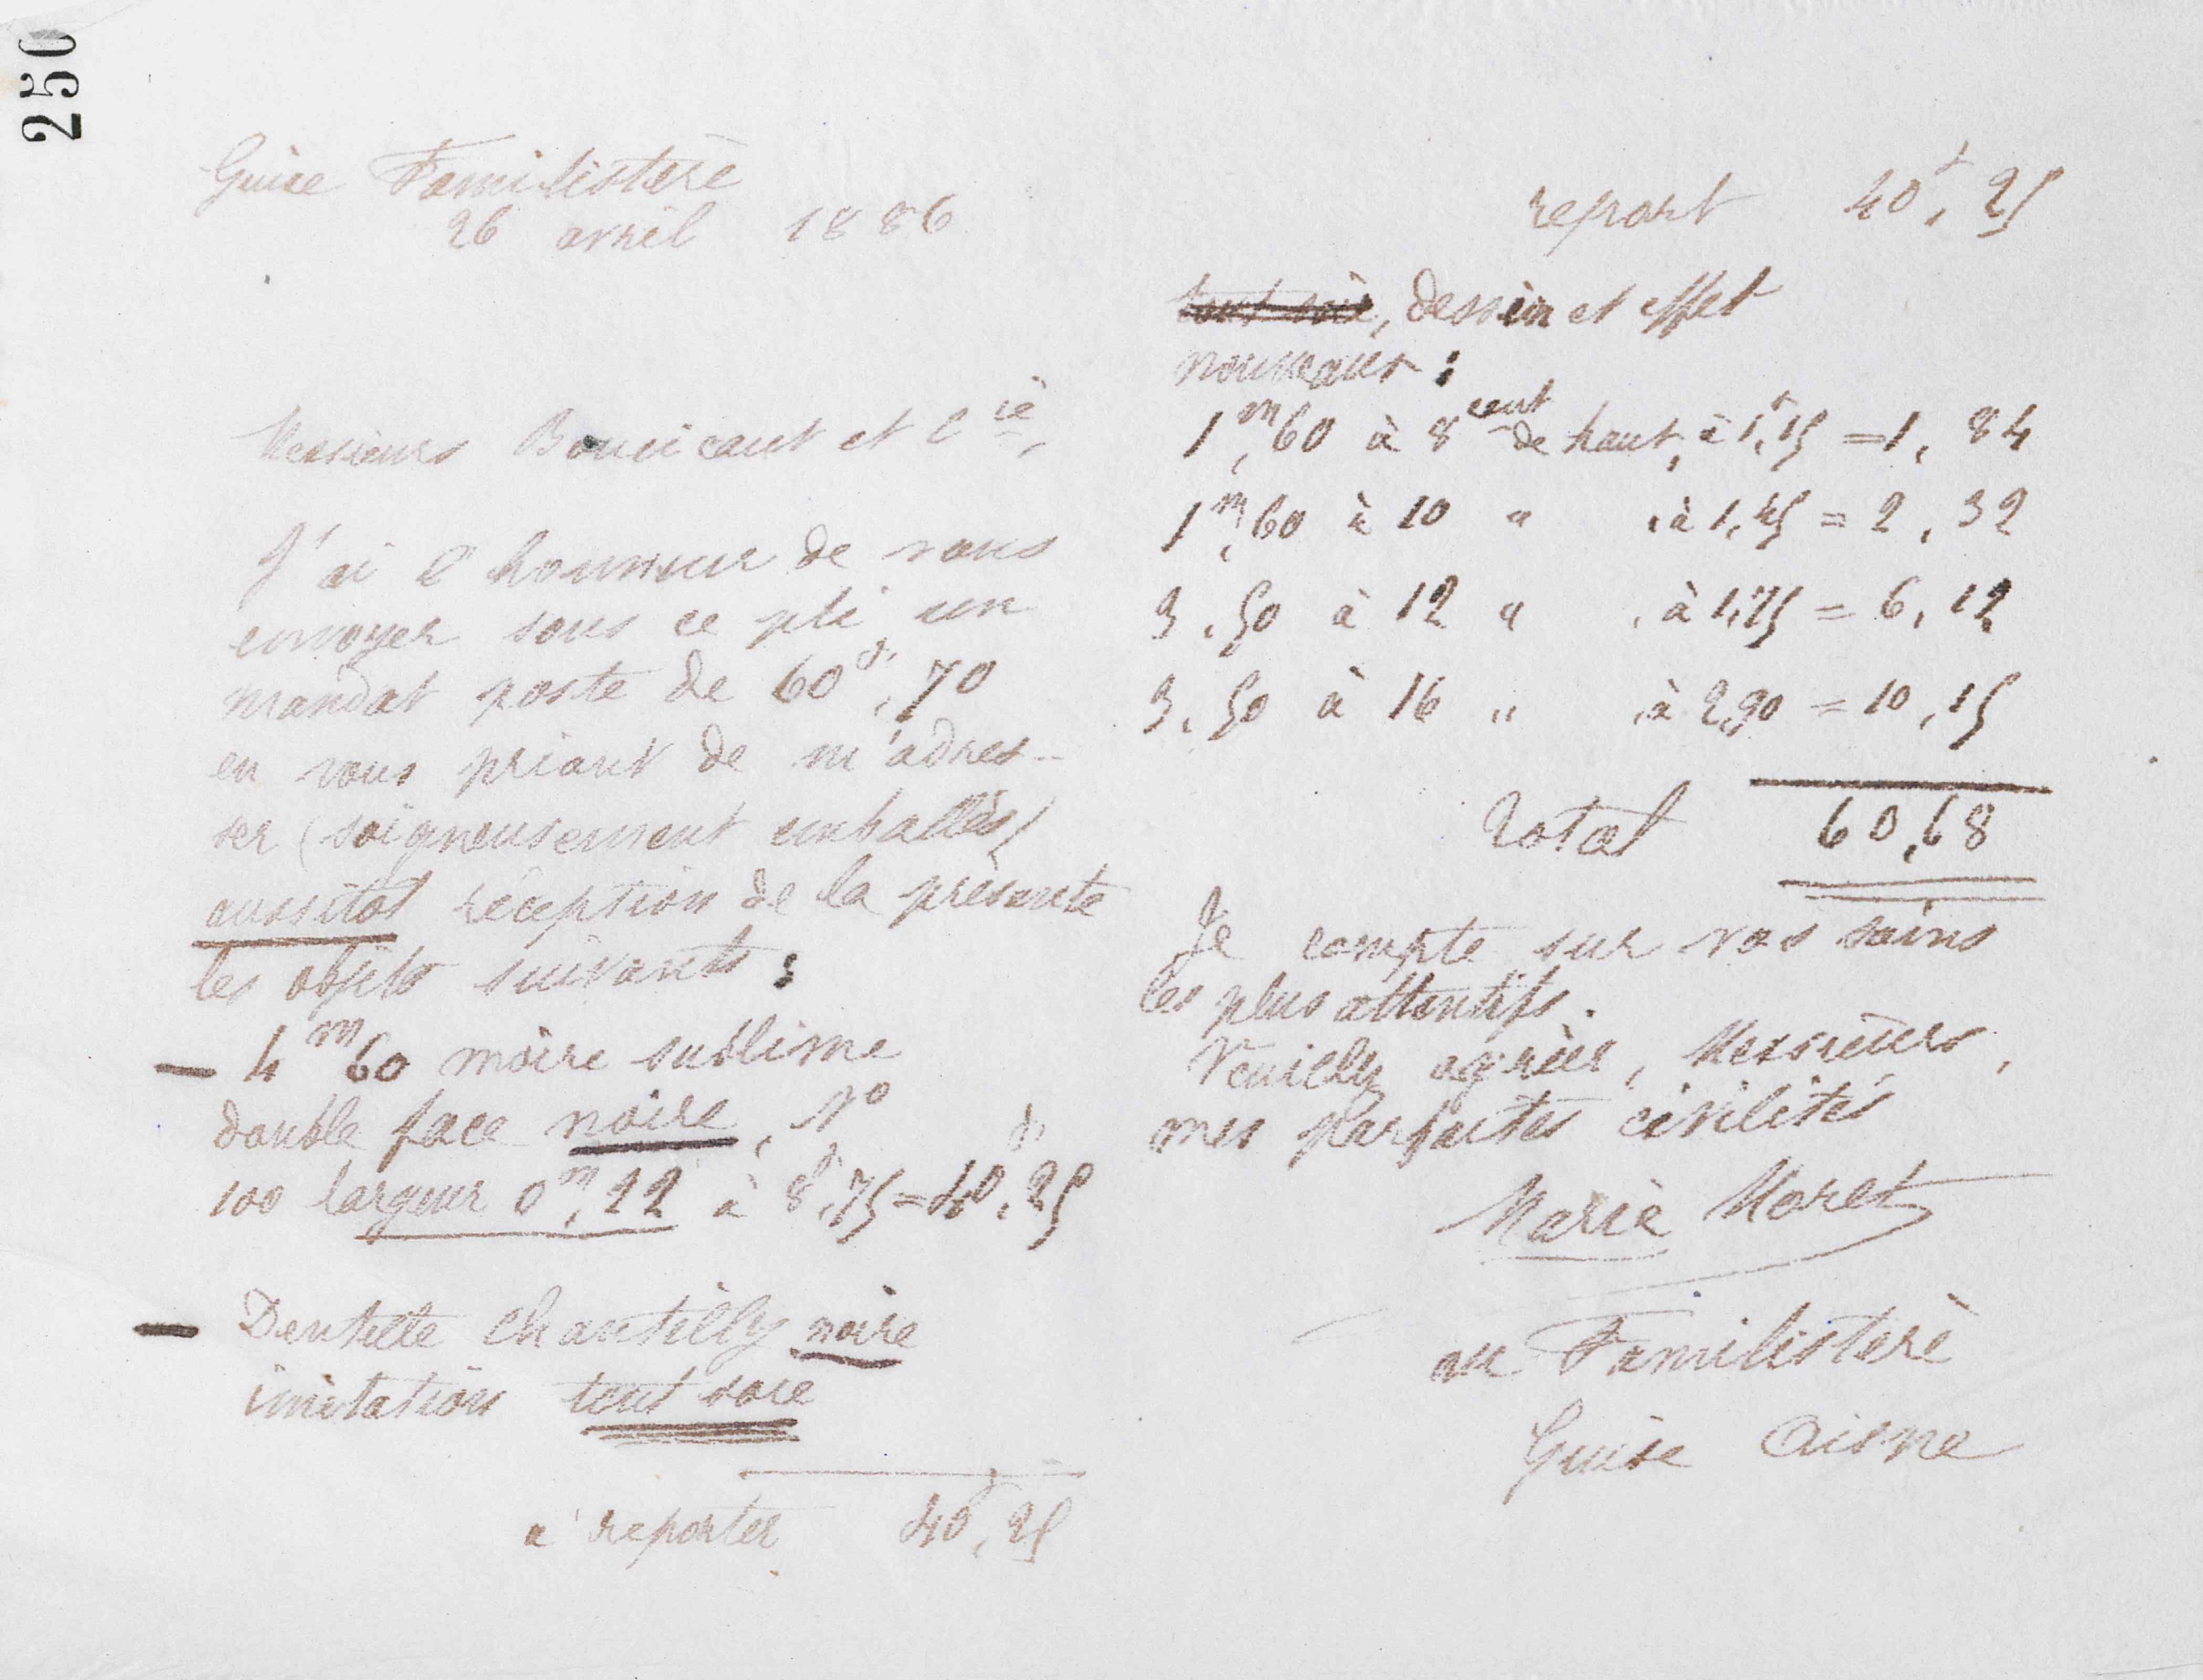 250
Guise Familistère
26 avril 1886
Messieurs Boucicaut et Cie,
J'ai l'honneur de vous
envoyer sous ce pli, un
mandat poste de 60f,70
en vous priant de m'adres-
ser (soigneusement emballés)
aussitôt réception de la présente
les objets suivants :
— 4m60 moire sublime
double face noire, No
100 largeur 0m,22 à 8f,75 = 40f,25
— Dentelle Chantilly noire
imitation tout soie
à reporter 40f,25
report 40f,25
tout soie, dessin et effet
nouveaux :
1m,60 à 8cent de haut, à 1f,15 = 1,84
1m,60 à 10 " , à 1,45 = 2,32
3,50 à 12 " , à 1,75 = 6,12
3,50 à 16 " , à 2,90 = 10,15
Total 60,68
Je compte sur vos soins
les plus attentifs.
Veuillez agréer, Messieurs,
mes parfaites civilités
Marie Moret
au Familistère
Guise Aisne